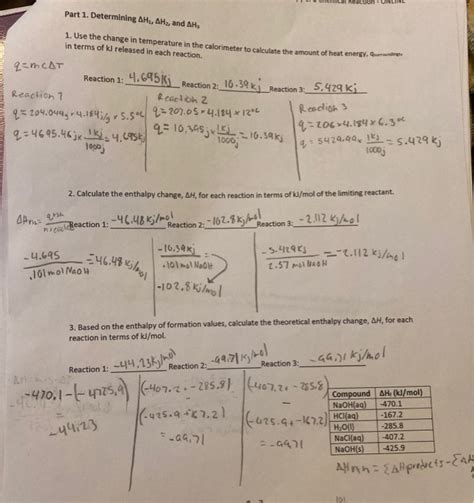 Chemical Reaction - ONLINE
Part 1. Determining ΔH₁, ΔH₂, and ΔH₃
1. Use the change in temperature in the calorimeter to calculate the amount of heat energy,
in terms of kJ released in each reaction.
q=mcΔT
Reaction 1: 4.695Kj Reaction 2: 10.39 kj Reaction 3: 5.429 kj
Reaction 1
q = 204.044g x 4.184 j/g x 5.5°C
q = 4695.46j x 1Kj/1000j = 4.695Kj
Reaction 2
q = 207.05 x 4.184 x 12°C
q = 10,395j x 1Kj/1000j = 10.39Kj
Reaction 3
q = 206 x 4.184 x 6.3°C
q = 5429.99 x 1Kj/1000j = 5.429 kj
2. Calculate the enthalpy change, ΔH, for each reaction in terms of kJ/mol of the limiting reactant.
Reaction 1: -46.48 kj/mol Reaction 2: -102.8 kj/mol Reaction 3: -2.112 kj/mol
-4.695/.101 mol NaOH = -46.48 Kj/mol
-10.39Kj/.101 mol NaOH =
-102.8 Kj/mol
-5.429Kj/2.57 mol NaOH = -2.112 kj/mol
3. Based on the enthalpy of formation values, calculate the theoretical enthalpy change, ΔH, for each
reaction in terms of kJ/mol.
Reaction 1: -44.23Kj/mol Reaction 2: -99.71 Kj/mol Reaction 3: -99.71 kj/mol
-470.1-(-425.9)
=
-44.23
(-407.2 + -285.8)
-
(-425.9 + -167.2)
= -99.71
(-407.2 + -285.8)
-
(-425.9 + -167.2)
= -99.71
Compound ΔHf (kJ/mol)
NaOH(aq) -470.1
HCl(aq) -167.2
H₂O(l) -285.8
NaCl(aq) -407.2
NaOH(s) -425.9
ΔHrxn = ΣΔHproducts - ΣΔH